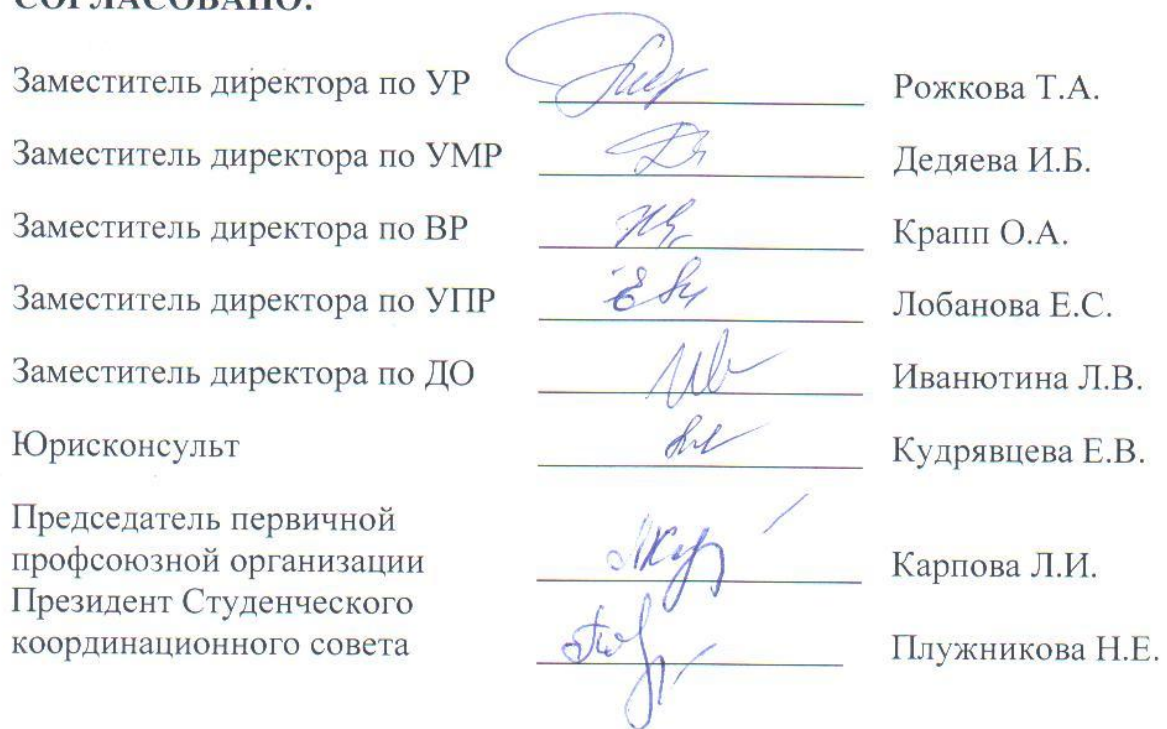 СОГЛАСОВАНО:
Заместитель директора по УР Рожкова Т.А.
Заместитель директора по УМР Дедяева И.Б.
Заместитель директора по ВР Крапп О.А.
Заместитель директора по УПР Лобанова Е.С.
Заместитель директора по ДО Иванютина Л.В.
Юрисконсульт Кудрявцева Е.В.
Председатель первичной
профсоюзной организации Карпова Л.И.
Президент Студенческого
координационного совета Плужникова Н.Е.